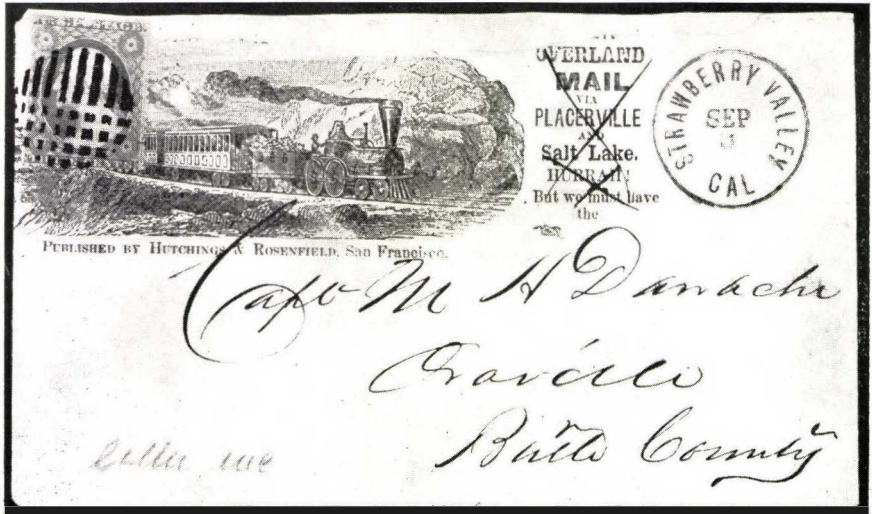 OVERLAND
MAIL
VIA
PLACERVILLE
AND
Salt Lake.
HURRAH!
But we must have
the
STRAWBERRY VALLEY
SEP
3
CAL
PUBLISHED BY HUTCHINGS & ROSENFIELD, San Francisco.
Capt M H Danache
Oroville
Butte County